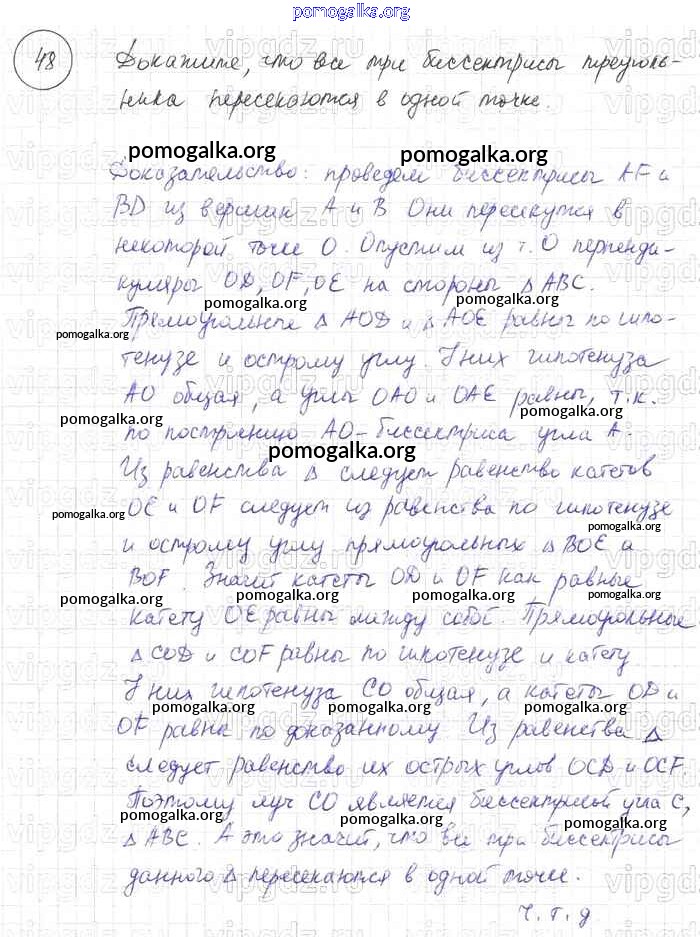 pomogalka.org
48
Докажите, что все три биссектрисы треуголь-
ника пересекаются в одной точке.
pomogalka.org pomogalka.org
Доказательство: проведем биссектрисы AF и
BD из вершин A и B Они пересекутся в
некоторой точке O. Опустим из т. O перпенди-
куляры OD, OF, OE на стороны △ ABC.
pomogalka.org pomogalka.org
Прямоугольные △ AOD и △ AOE равны по гипо-
pomogalka.org
тенузе и острому углу. У них гипотенуза
AO общая, а углы OAD и OAE равны, т.к.
pomogalka.org pomogalka.org
по построению AO - биссектриса угла A.
pomogalka.org
Из равенства △ следует равенство катетов
OE и OF следует из равенства по гипотенузе
pomogalka.org pomogalka.org
и острому углу прямоугольных △ BOE и
BOF. Значит катеты OD и OF как равные
pomogalka.org pomogalka.org pomogalka.org pomogalka.org
катету OE равны между собой. Прямоугольные
△ COD и COF равны по гипотенузе и катету
У них гипотенуза CO общая, а катеты OD и
pomogalka.org pomogalka.org pomogalka.org
OF равны по доказанному Из равенства △
следует равенство их острых углов OCD и OCF.
Поэтому луч CO является биссектрисой угла C,
pomogalka.org pomogalka.org pomogalka.org
△ ABC. А это значит, что все три биссектрисы
данного △ пересекаются в одной точке.
ч.т.д